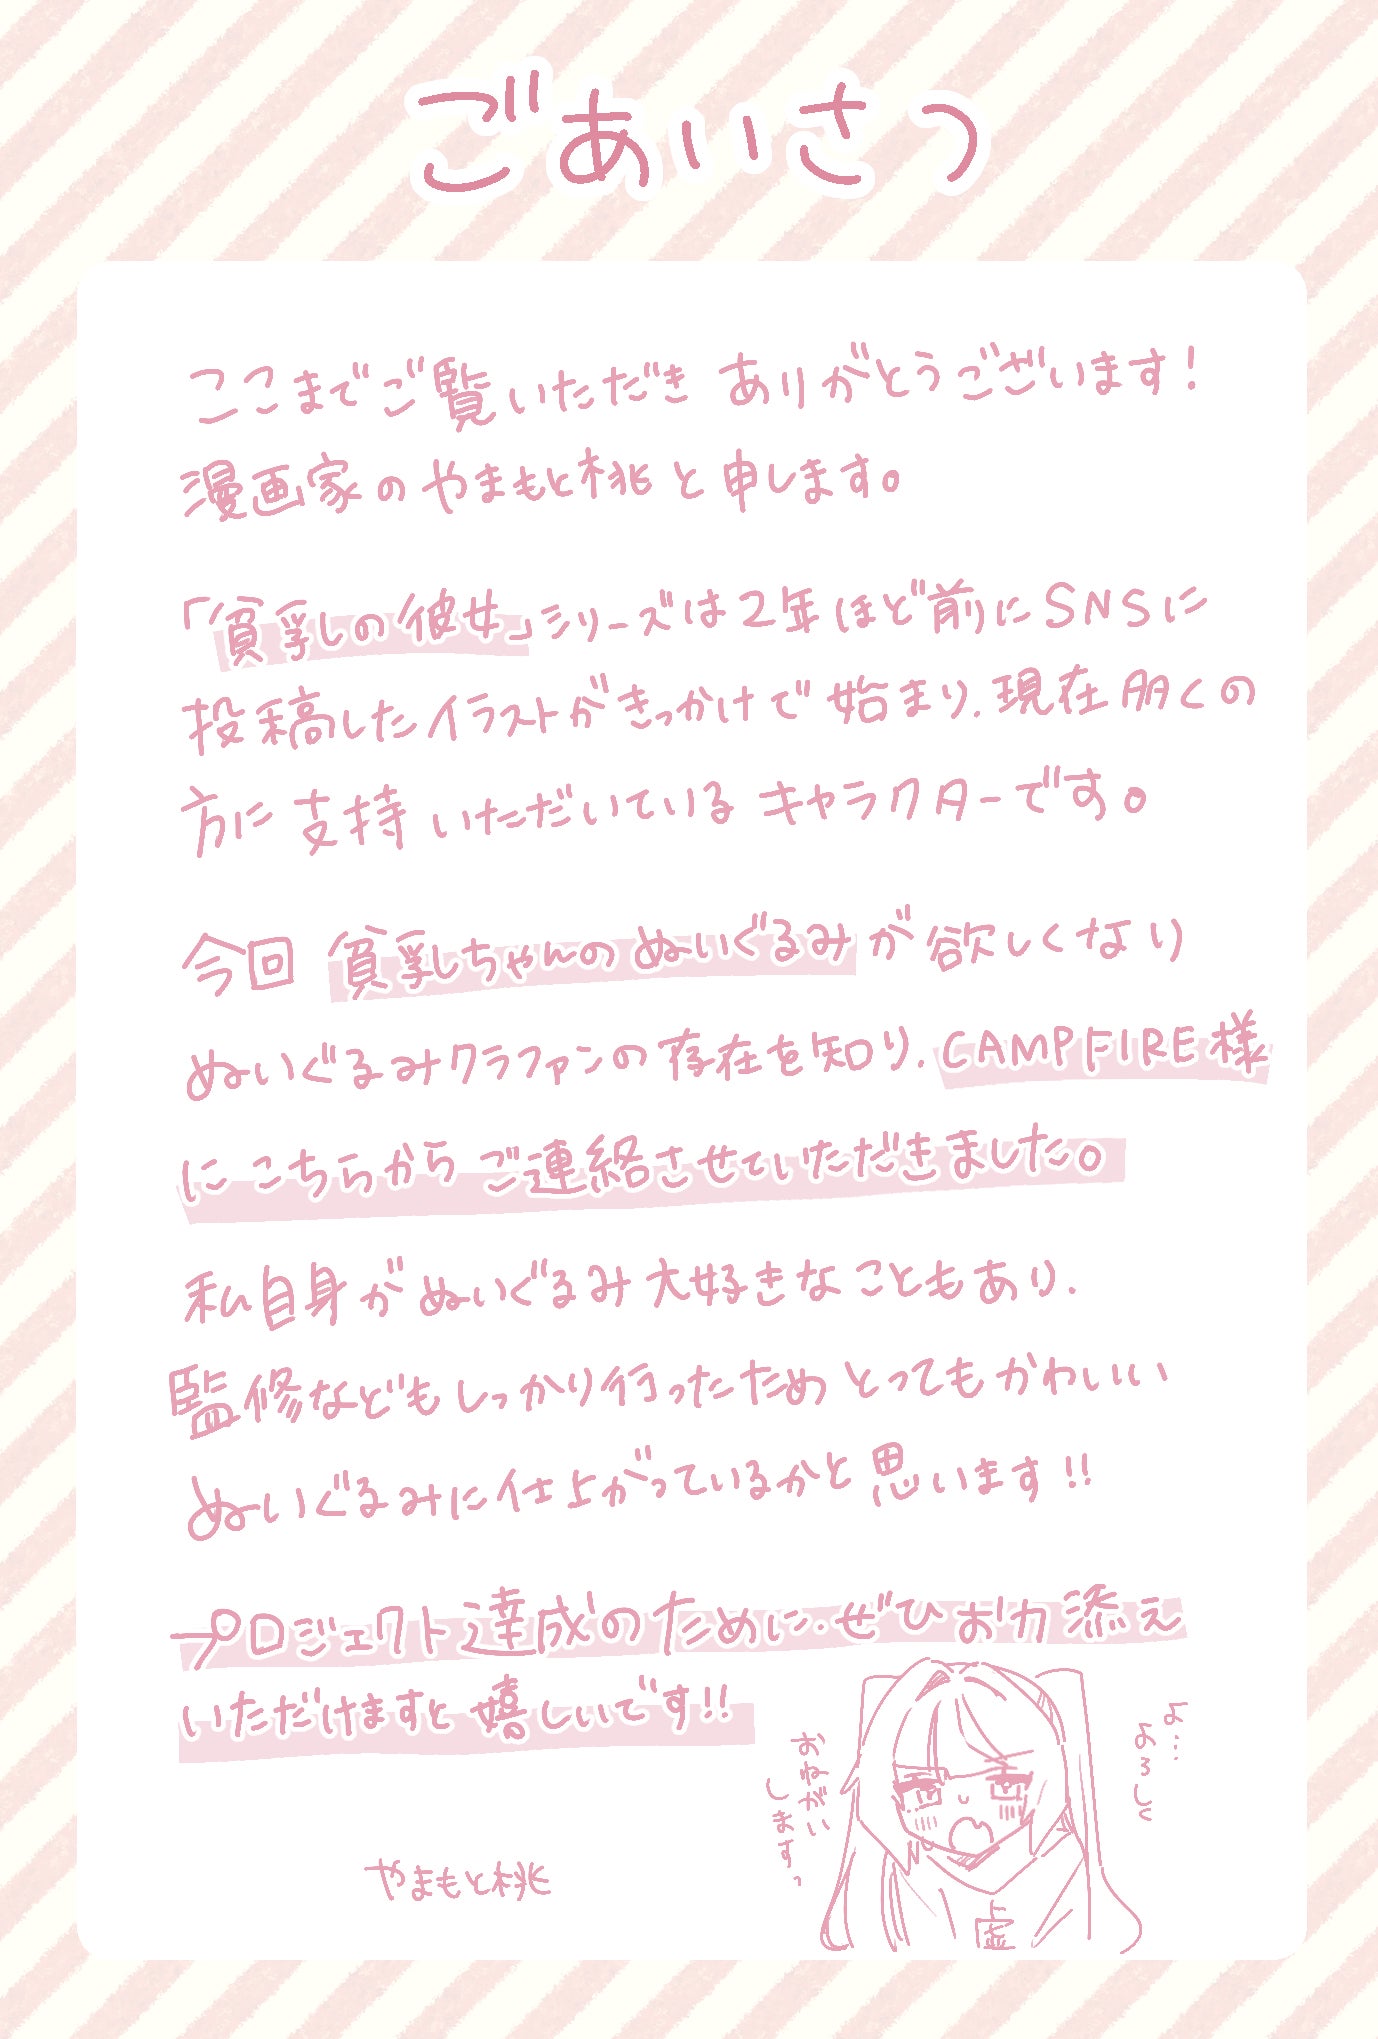 ごあいさつ
ここまでご覧いただき ありがとうございます!
漫画家の やまもと桃 と 申します。
「貧乳しの彼女」シリーズは2年ほど前にSNSに
投稿したイラストがきっかけで 始まり、現在 多くの
方に 支持 いただいている キャラクターです。
今回 貧乳しちゃんの ぬいぐるみ が 欲しくなり
ぬいぐるみクラファンの存在を知り、CAMPFIRE様
に こちらから ご連絡させていただきました。
私自身が ぬいぐるみ大好きなこともあり、
監修などもしっかり行ったため とってもかわいい
ぬいぐるみに仕上がっているかと思います!!
プロジェクト達成のために、ぜひ お力添え
いただけますと 嬉しいです!!
よ…
よろしく
おねがい
しますっ
虚
やまもと桃